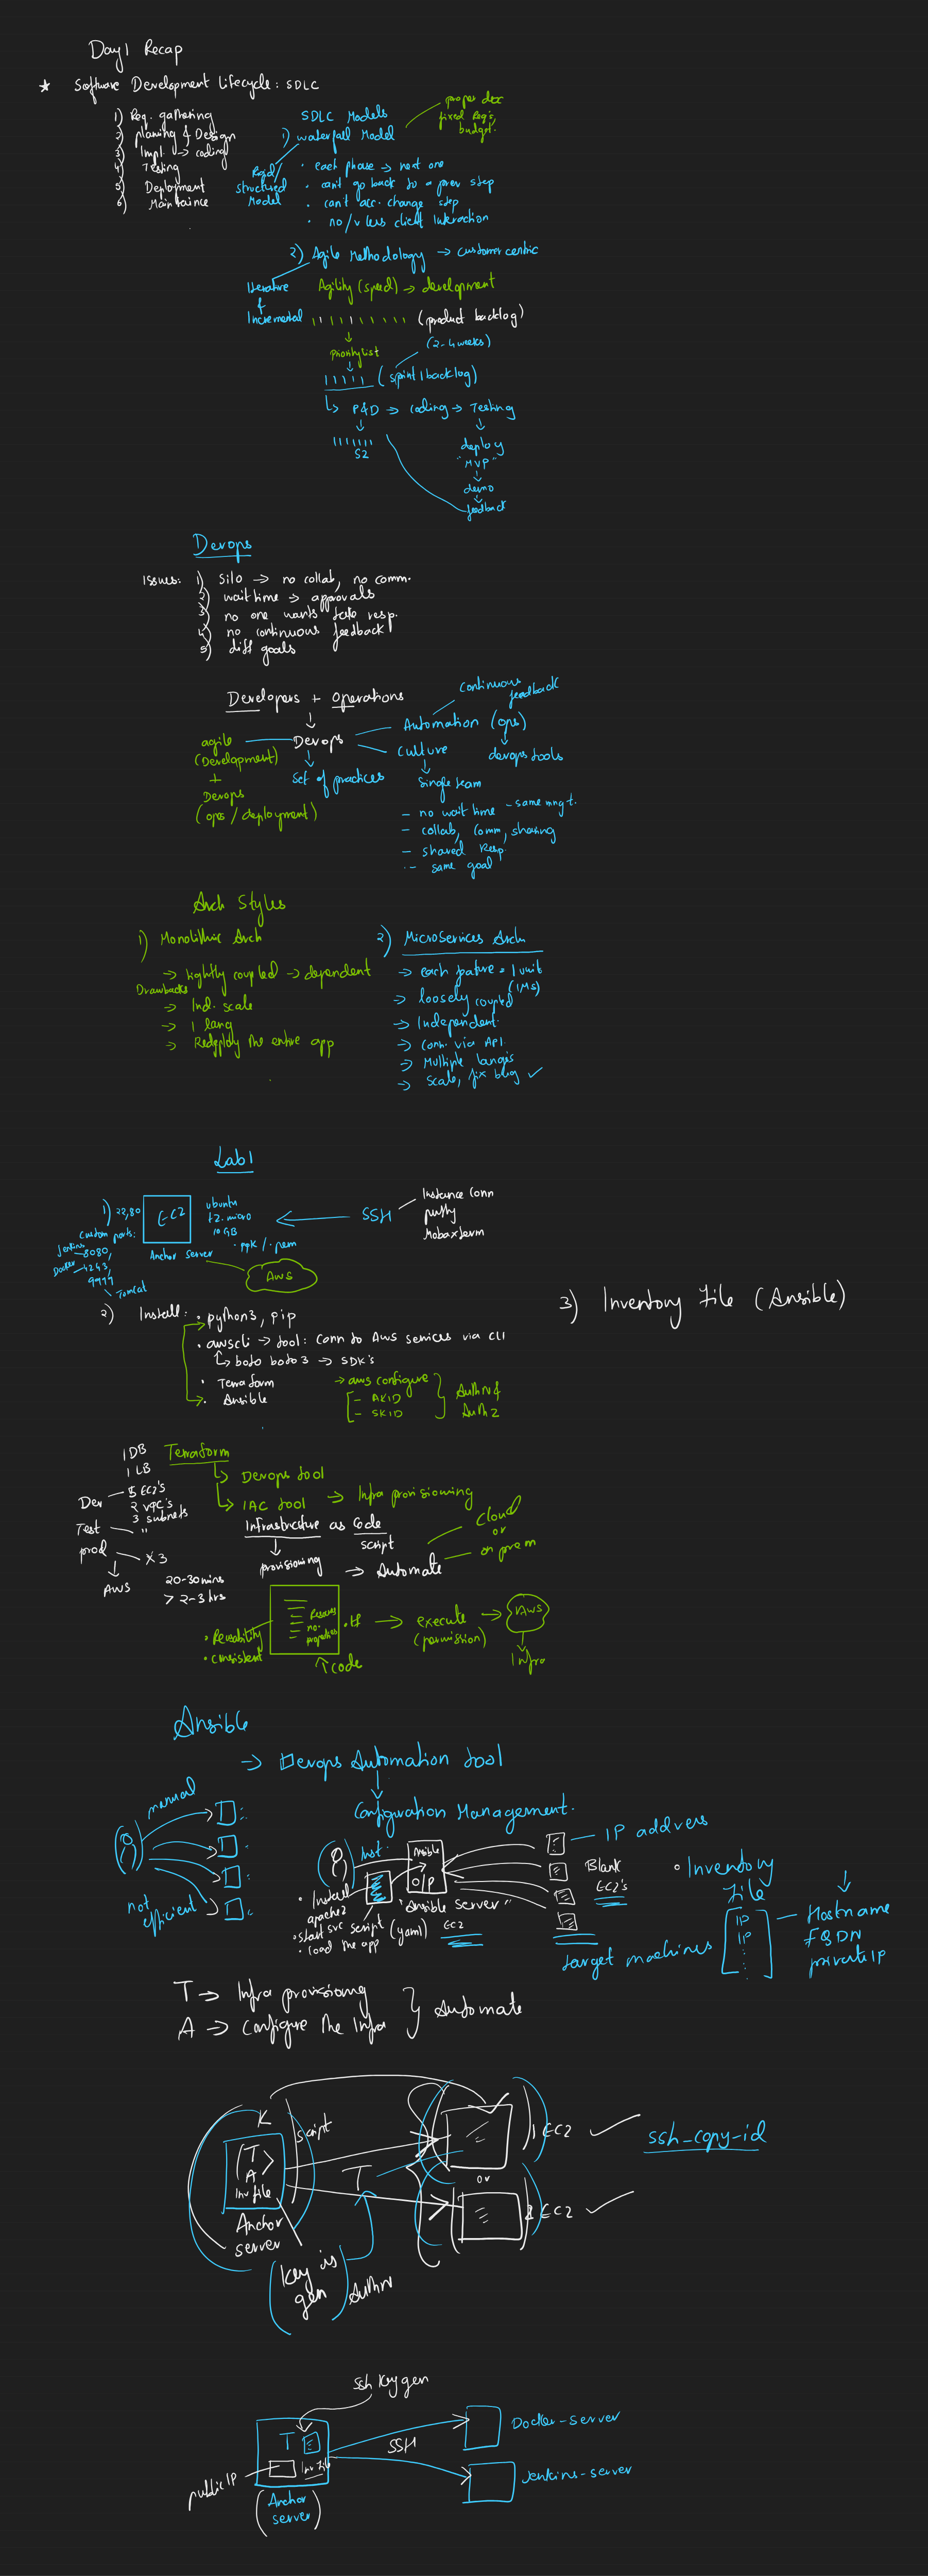 Day1 Recap
★ Software Development Lifecycle: SDLC
1) Req. gathering
2) planning & Design
3) Impl. → coding
4) Testing
5) Deployment
6) Maintaince
SDLC Models
1) waterfall Model
proper doc
fixed Req's
budget.
Rigid/
structured
Model
· each phase → next one
· can't go back to a prev step
· can't acc. change step
· no/v less client Interaction
2) Agile Methodology → customer centric
Iterative
&
Incremental
Agility (speed) → development
(product backlog)
↓
Priority list
(2-4 weeks)
(sprint 1 backlog)
↳ P&D → coding → Testing
↓
S2
deploy
"MVP"
↓
demo
↓
feedback
Devops
Issues: 1) Silo → no collab, no comm.
2) wait time → approvals
3) no one wants take resp.
4) no continuous feedback
5) diff goals
Developers + Operations
↓
Devops
Set of practices
agile
(Development)
+
Devops
(ops / deployment)
continuous
feedback
Automation (ops)
↓
devops tools
culture
↓
Single team
- no wait time - same mngt.
- collab, comm, sharing
- shared Resp.
- same goal
Arch Styles
1) Monolithic Arch
→ tightly coupled → dependent
Drawbacks
→ Ind. scale
→ 1 lang
→ Redeploy the entire app
2) MicroServices Arch
→ each feature = 1 unit
(1MS)
→ loosely coupled
→ Independent.
→ Comm. via API.
→ Multiple langs
→ Scale, fix bug ✓
Lab1
1) 22,80
Custom ports:
Jenkins - 8080,
Docker - 4243,
9999
Tomcat
EC2
Anchor Server
ubuntu
t2.micro
10 GB
.ppk / .pem
AWS
← SSH
Instance Conn
putty
Mobaxterm
2) Install: · python3, pip
· awscli → tool: Conn to AWS services via CLI
↳ boto boto3 → SDK's
· Terraform
· Ansible
→ aws configure
- AKID
- SKID
AuthN &
AuthZ
3) Inventory file (Ansible)
1 DB
1 LB
Dev - 5 EC2's
2 VPC's
3 subnets
Test - "
prod - x3
↓
AWS
20-30mins
> 2-3 hrs
Terraform
↳ Devops tool
↳ IAC tool → Infra provisioning
Infrastructure as Code
script
↓
provisioning → Automate
Cloud
or
on prem
Resources
no.
properties
.tf → execute → AWS
(permission)
↓
Infra
↑ code
· Reusability
· consistent
Ansible
→ Devops Automation tool
↓
Configuration Management.
manual
not
efficient
Ansible
"Ansible Server"
EC2
· Install
apache2
· start svc script (yaml)
· load the app
IP address
Blank
EC2's
target machines
· Inventory
file
IP
IP
Hostname
FQDN
private IP
T → Infra provisiong
A → configure the Infra
} Automate
K
script
T
A
Inv file
Anchor
server
T
(key is
gen)
AuthN
1 EC2 ✓
or
2 EC2 ✓
ssh-copy-id
ssh keygen
T
Inv file
public IP
(Anchor
server)
SSH
Docker-server
Jenkins-server